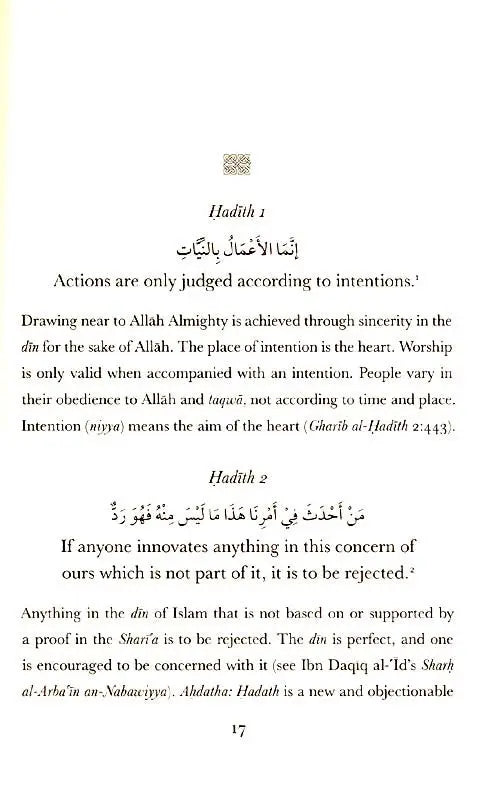 Ḥadīth 1
إِنَّمَا الأَعْمَالُ بِالنِّيَّاتِ
Actions are only judged according to intentions.¹
Drawing near to Allāh Almighty is achieved through sincerity in the
dīn for the sake of Allāh. The place of intention is the heart. Worship
is only valid when accompanied with an intention. People vary in
their obedience to Allāh and taqwā, not according to time and place.
Intention (niyya) means the aim of the heart (Gharīb al-Ḥadīth 2:443).
Ḥadīth 2
مَنْ أَحْدَثَ فِيْ أَمْرِنَا هَذَا مَا لَيْسَ مِنْهُ فَهُوَ رَدٌّ
If anyone innovates anything in this concern of
ours which is not part of it, it is to be rejected.²
Anything in the dīn of Islam that is not based on or supported by
a proof in the Sharī'a is to be rejected. The dīn is perfect, and one
is encouraged to be concerned with it (see Ibn Daqīq al-'Īd's Sharḥ
al-Arba'īn an-Nabawiyya). Aḥdatha: Ḥadath is a new and objectionable
17